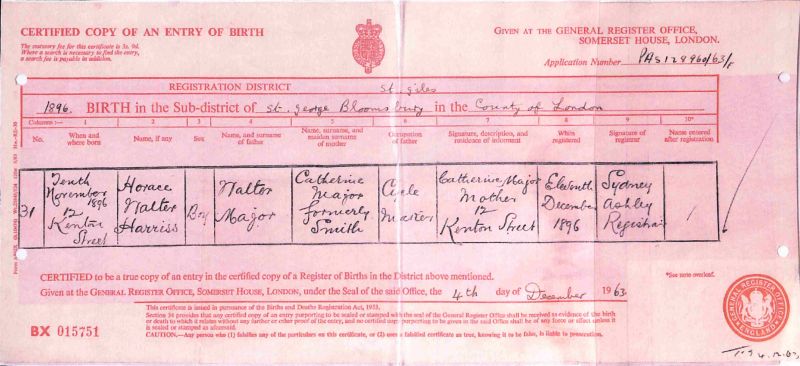 CERTIFIED COPY OF AN ENTRY OF BIRTH
The statutory fee for this certificate is 3s. 9d.
Where a search is necessary to find the entry,
a search fee is payable in addition.
GIVEN AT THE GENERAL REGISTER OFFICE,
SOMERSET HOUSE, LONDON.
Application Number PAS128960/63/F
REGISTRATION DISTRICT St. Giles
1896. BIRTH in the Sub-district of St. George Bloomsbury in the County of London
Columns:— 1 2 3 4 5 6 7 8 9 10*
No. When and where born Name, if any Sex Name, and surname of father Name, surname, and maiden surname of mother Occupation of father Signature, description, and residence of informant When registered Signature of registrar Name entered after registration
31 Tenth November 1896 12 Kenton Street Horace Walter Harriss Boy Walter Major Catherine Major formerly Smith Cycle Maker Catherine Major Mother 12 Kenton Street Eleventh December 1896 Sydney Ashley Registrar /
CERTIFIED to be a true copy of an entry in the certified copy of a Register of Births in the District above mentioned.
*See note overleaf.
Given at the GENERAL REGISTER OFFICE, SOMERSET HOUSE, LONDON, under the Seal of the said Office, the 4th day of December 1963.
This certificate is issued in pursuance of the Births and Deaths Registration Act, 1953.
Section 34 provides that any certified copy of an entry purporting to be sealed or stamped with the seal of the General Register Office shall be received as evidence of the birth
or death to which it relates without any further or other proof of the entry, and no certified copy purporting to be given in the said Office shall be of any force or effect unless it
is sealed or stamped as aforesaid.
CAUTION.—Any person who (1) falsifies any of the particulars on this certificate, or (2) uses a falsified certificate as true, knowing it to be false, is liable to prosecution.
BX 015751
GENERAL REGISTER OFFICE
ENGLAND